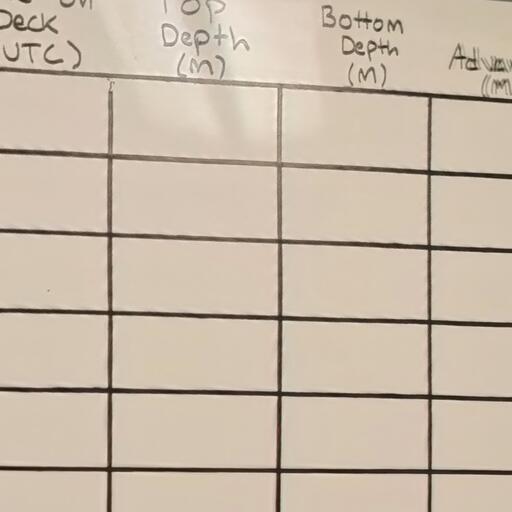 on
Deck
(UTC)
Top
Depth
(M)
Bottom
Depth
(M)